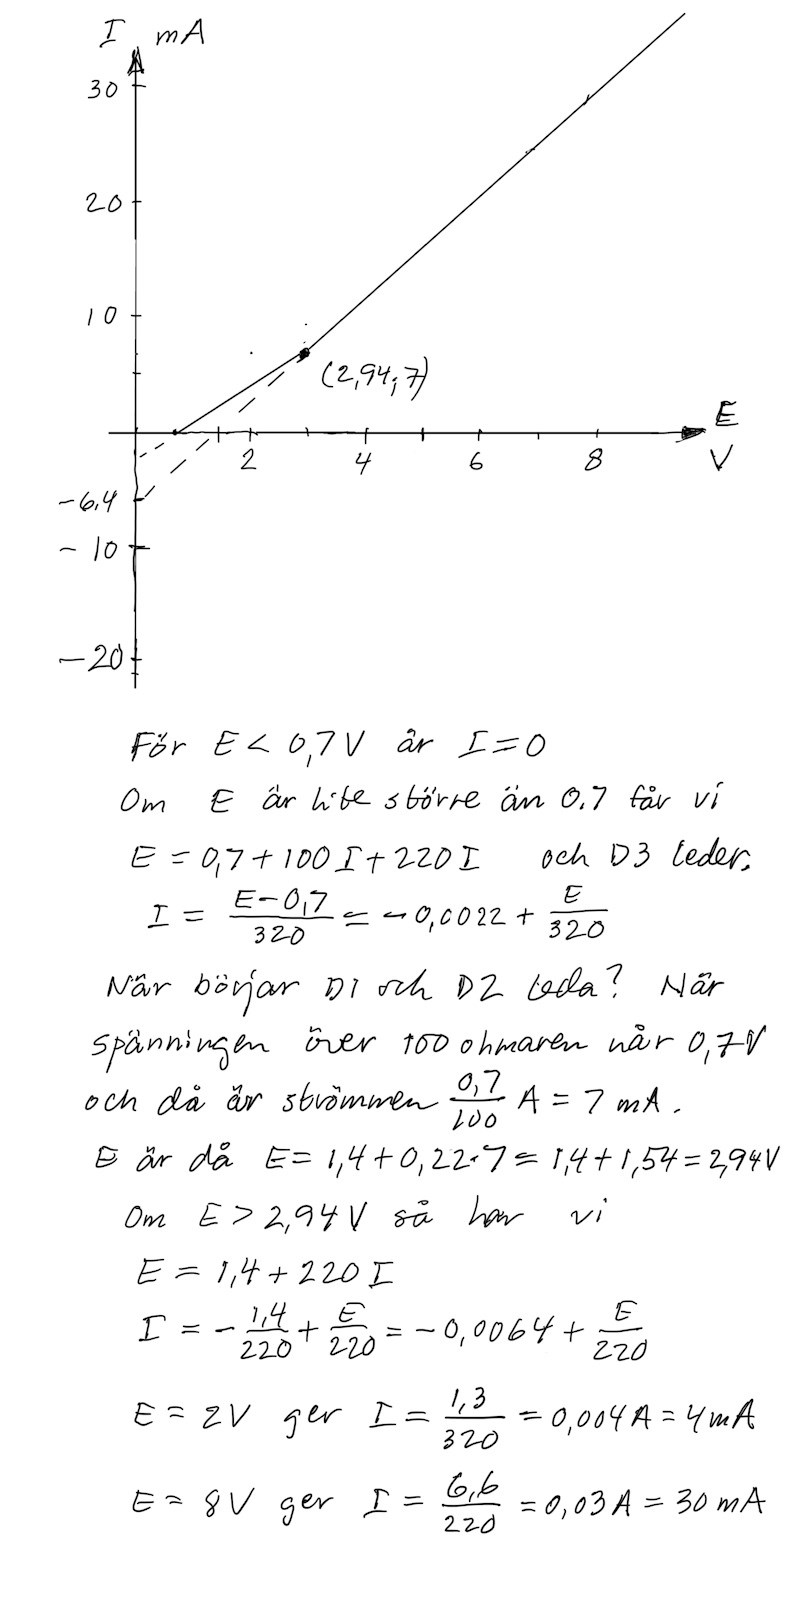 I mA
30
20
10
(2,94; 7)
E
2 4 6 8 V
-6,4
-10
-20
För E < 0,7 V är I = 0
Om E är lite större än 0.7 får vi
E = 0,7 + 100 I + 220 I och D3 leder.
I = \frac{E-0,7}{320} = -0,0022 + \frac{E}{320}
När börjar D1 och D2 leda? När
spänningen över 100 ohmaren når 0,7 V
och då är strömmen \frac{0,7}{100} A = 7 mA.
E är då E = 1,4 + 0,22·7 = 1,4 + 1,54 = 2,94 V
Om E > 2,94 V så har vi
E = 1,4 + 220 I
I = -\frac{1,4}{220} + \frac{E}{220} = -0,0064 + \frac{E}{220}
E = 2V ger I = \frac{1,3}{320} = 0,004 A = 4 mA
E = 8V ger I = \frac{6,6}{220} = 0,03 A = 30 mA